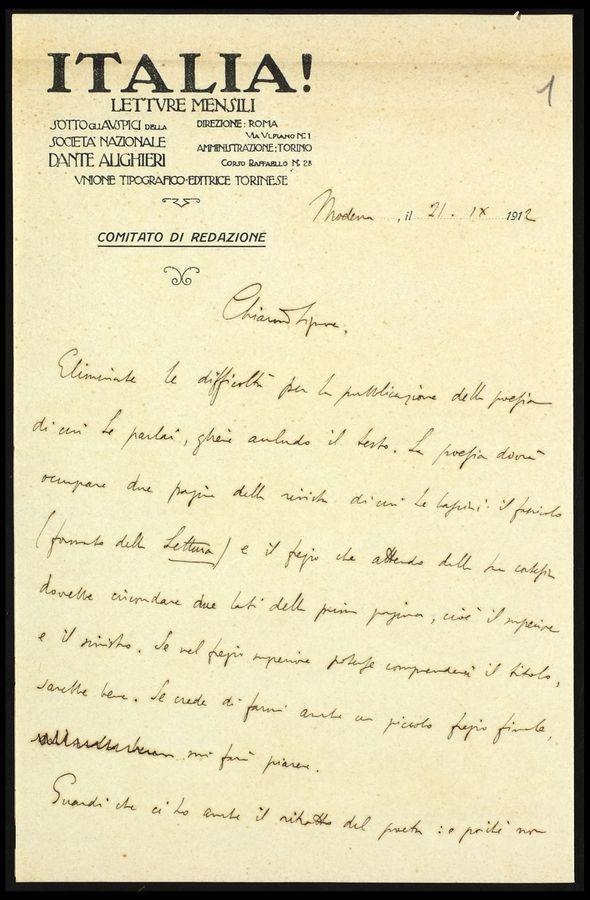 ITALIA!
LETTVRE MENSILI
SOTTO GLI AVSPICI DELLA
SOCIETA' NAZIONALE
DANTE ALIGHIERI
DIREZIONE: ROMA
VIA VLPIANO N. 1
AMMINISTRAZIONE: TORINO
CORSO RAFFAELLO N. 28
VNIONE TIPOGRAFICO-EDITRICE TORINESE
1
Modena, il 21. IX 1912
COMITATO DI REDAZIONE
Chiarmo Signore,
Eliminate le difficoltà per la pubblicazione della poesia
di cui Le parlai, gliene accludo il testo. La poesia dovrà
occupare due pagine della rivista di cui Le lasciai il fascicolo
(formato della Lettura) e il fregio che attendo dalla sua cortesia
dovrebbe circondare due lati della prima pagina, cioè il superiore
e il sinistro. Se nel fregio superiore potesse comprendersi il titolo,
sarebbe bene. Se crede di farmi anche un piccolo fregio finale,
mi farà piacere.
Guardi che ci ho anche il ritratto del poeta: e poiché non